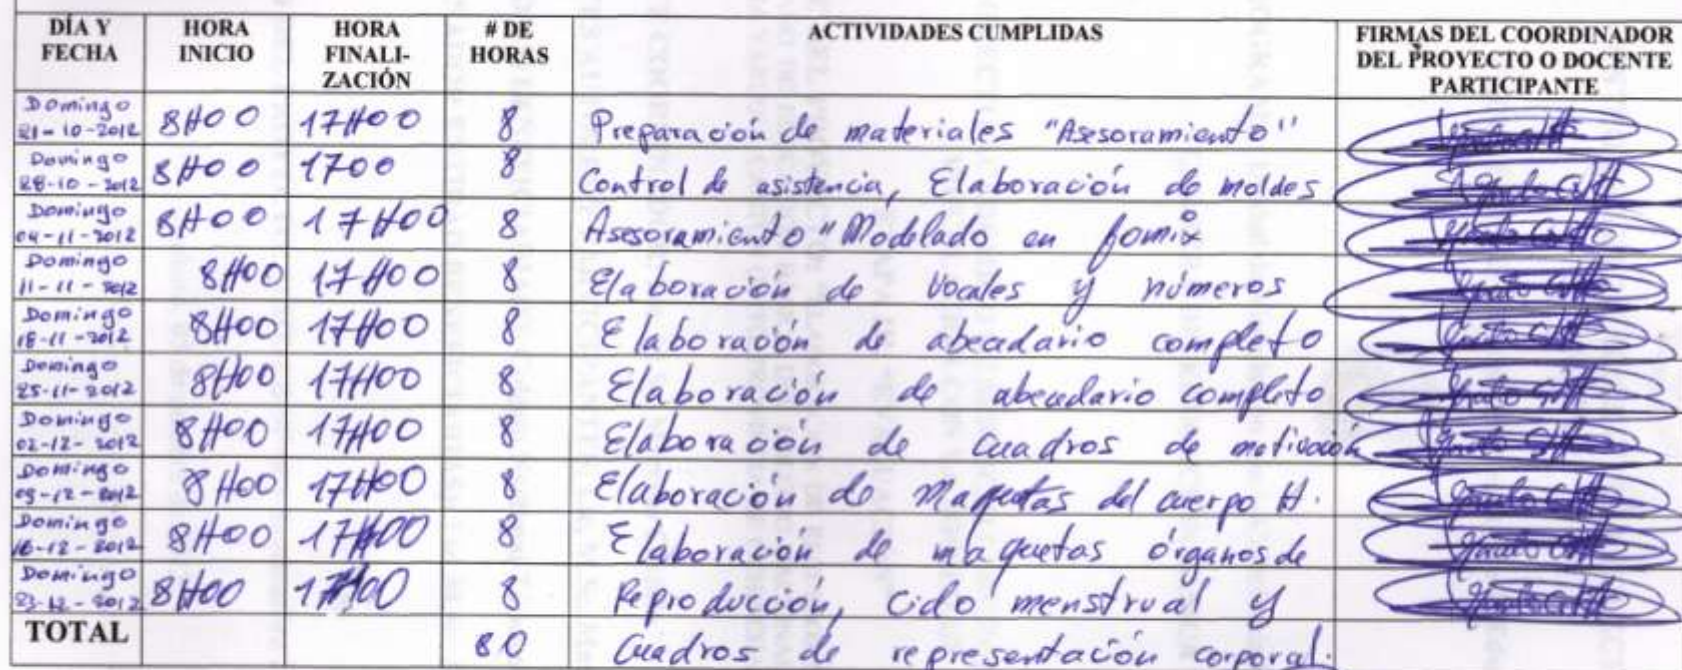 DÍA Y FECHA HORA INICIO HORA FINALI-ZACIÓN # DE HORAS ACTIVIDADES CUMPLIDAS FIRMAS DEL COORDINADOR DEL PROYECTO O DOCENTE PARTICIPANTE
Domingo 21-10-2012 8H00 17H00 8 Preparación de materiales "Asesoramiento"
Domingo 28-10-2012 8H00 1700 8 Control de asistencia, Elaboración de moldes
Domingo 04-11-2012 8H00 17H00 8 Asesoramiento "Modelado en fomix
Domingo 11-11-2012 8H00 17H00 8 Elaboración de vocales y números
Domingo 18-11-2012 8H00 17H00 8 Elaboración de abecedario completo
Domingo 25-11-2012 8H00 17H00 8 Elaboración de abecedario completo
Domingo 02-12-2012 8H00 17H00 8 Elaboración de cuadros de motivación
Domingo 09-12-2012 8H00 17H00 8 Elaboración de Maquetas del cuerpo H.
Domingo 16-12-2012 8H00 17H00 8 Elaboración de maquetas órganos de
Domingo 23-12-2012 8H00 17H00 8 Reproducción, Ciclo menstrual y
TOTAL 80 Cuadros de representación corporal.